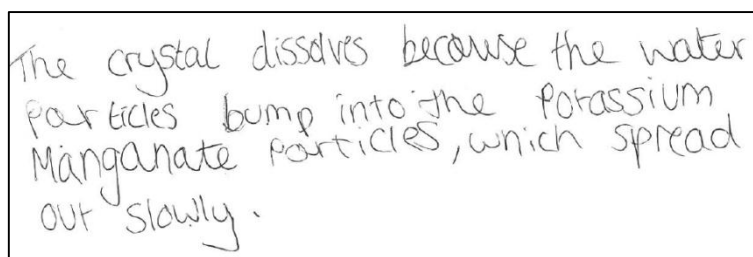 The crystal dissolves because the water
particles bump into the Potassium
Manganate particles, which spread
out slowly.